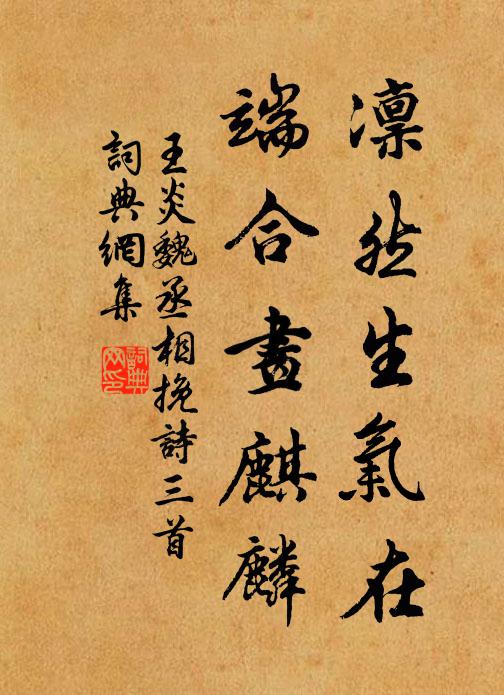 凜然生氣在
端合畫麒麟
王炎魏丞相挽詩三首
詞典網集
詞典網印